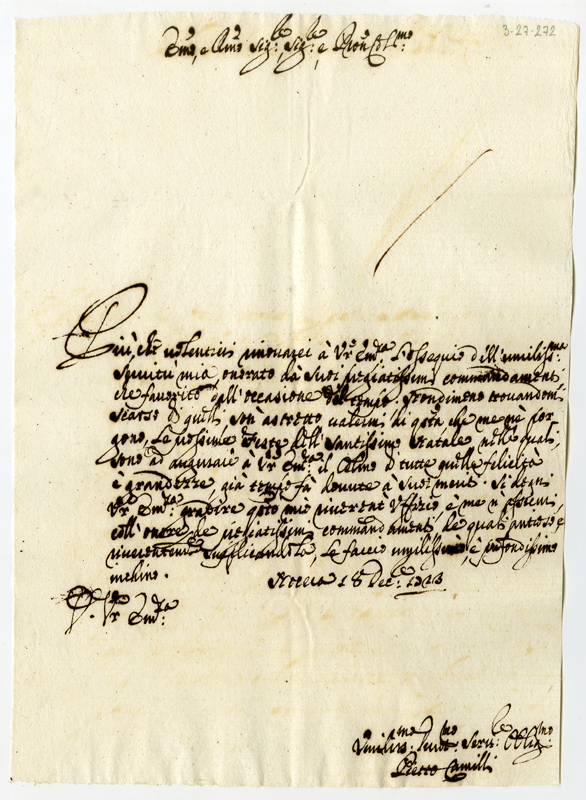 3-27-272
Emo, e Rmo Sig:re Sig:re e Pron Col:mo
Più, che volentieri rinovarei à Vr̃a Em:za l'ossequio dell'umiliss:ma
servitù mia, onorato dà suoi pregiatissimi commandamenti
che favorito dall'occasione del tempo. Nondimeno trovandomi
scarso di quelli, son astretto valermi di qsta che me ne por
gono, le prossime Feste dell Santissimo Natale nelle quali
sono ad augurare à Vr̃a Em:za il Colmo di tutte quelle felicità
è grandezze, già tempo fà dovute à suoi meriti. Si degni
Vr̃a Em:za gradire qsto mio riverente Uffizio, è me
coll'onore de pregiatissimi commandamenti, de quali
riverentemte supplicandola, le faccio umilissimo è profondissimo
inchino.
18 Dec:re
D. Vr̃a Em:za
Umiliss:mo Serv:re Oblig:mo
Pietro Camilli